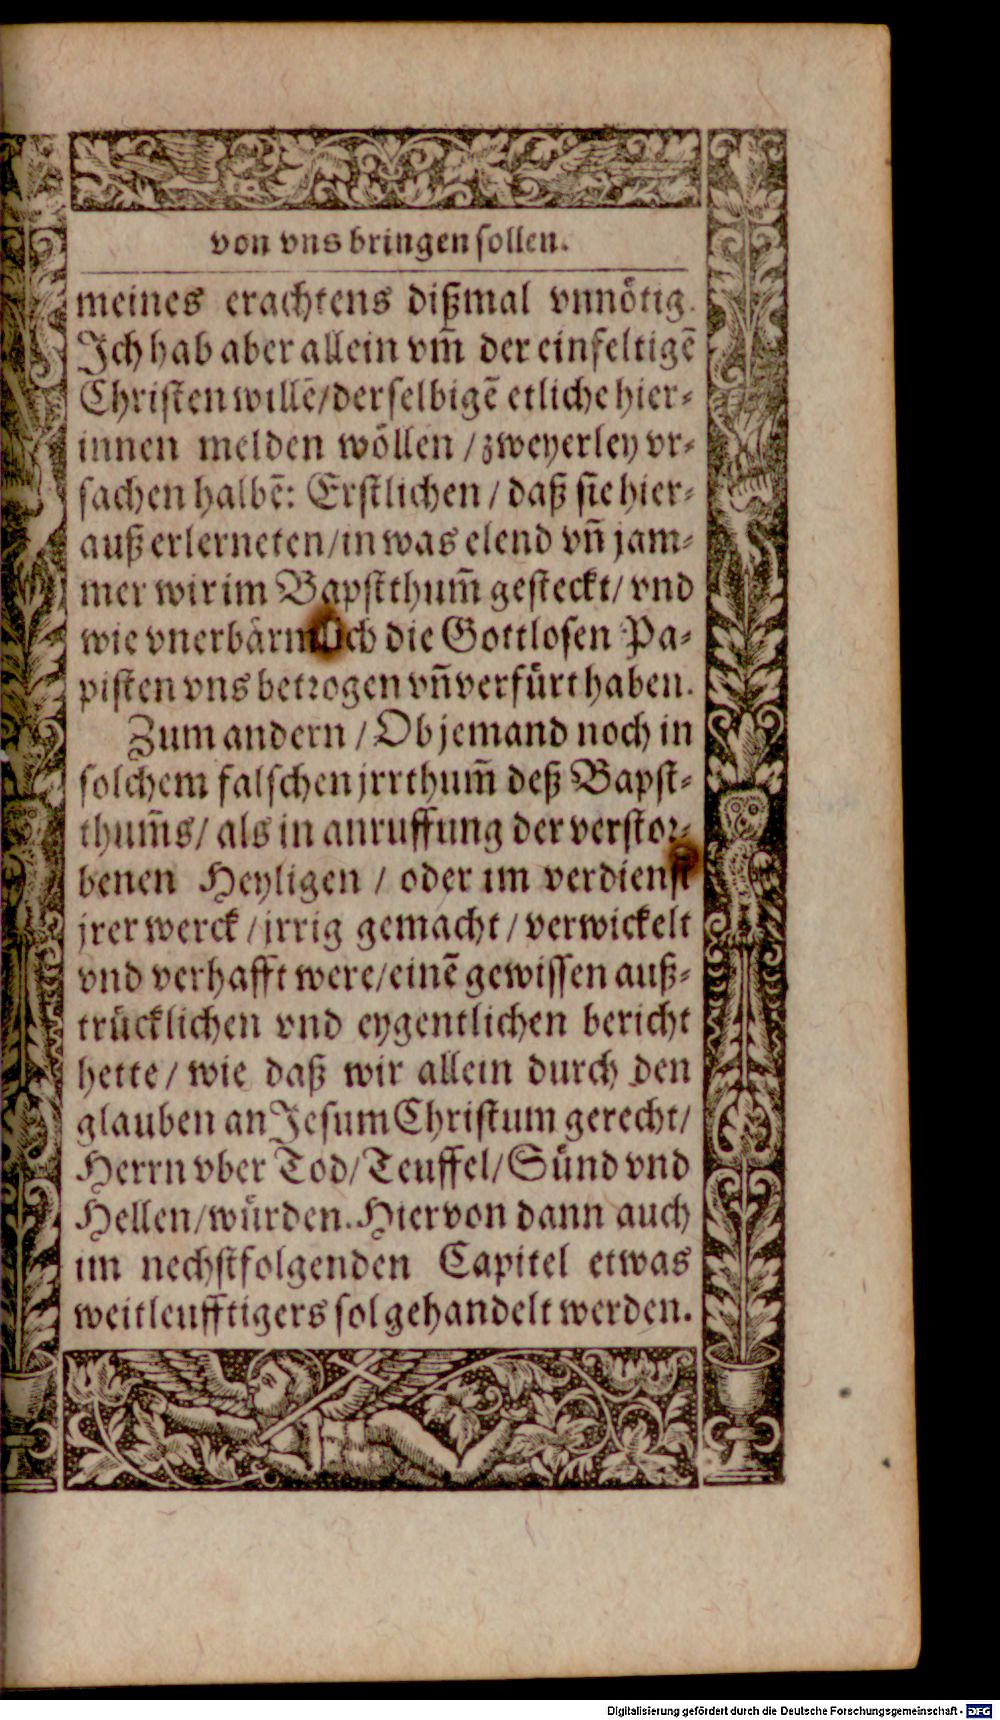 von vns bringen sollen.
meines erachtens dißmal vnnötig.
Ich hab aber allein vm̃ der einfeltigẽ
Christen willẽ/derselbigẽ etliche hier⸗
innen melden wöllen / zweyerley vr⸗
sachen halbẽ: Erstlichen / daß sie hier⸗
auß erlerneten/in was elend vñ jam⸗
mer wir im Bapstthum̃ gesteckt/ vnd
wie vnerbärmlich die Gottlosen Pa⸗
pisten vns betrogen vñ verfürt haben.
Zum andern / Ob jemand noch in
solchem falschen jrrthum̃ deß Bapst⸗
thum̃s/ als in anruffung der verstor⸗
benen Heyligen / oder im verdienst
jrer werck / jrrig gemacht / verwickelt
vnd verhafft were/einẽ gewissen auß⸗
trücklichen vnd eygentlichen bericht
hette / wie daß wir allein durch den
glauben an Jesum Christum gerecht/
Herrn vber Tod/Teuffel/Sünd vnd
Hellen/würden. Hiervon dann auch
im nechstfolgenden Capitel etwas
weitleufftigers sol gehandelt werden.
Digitalisierung gefördert durch die Deutsche Forschungsgemeinschaft - DFG